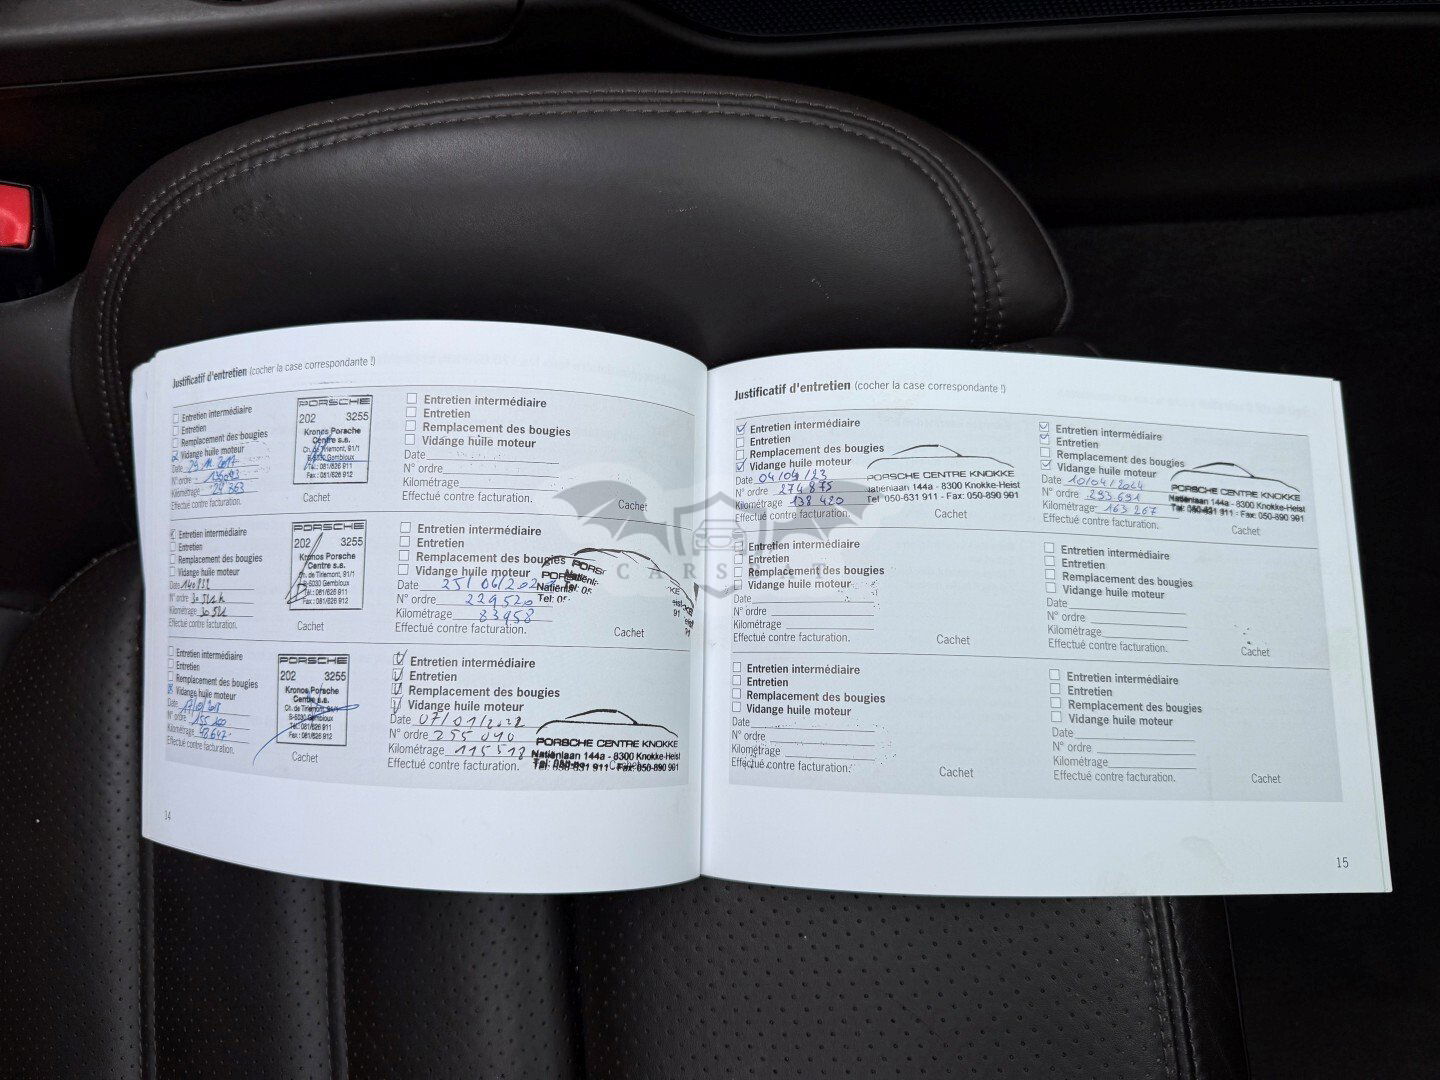 Justificatif d'entretien (cocher la case correspondante !)
Entretien intermédiaire
Entretien
Remplacement des bougies
Vidange huile moteur
Date
N° ordre
Kilométrage
Effectué contre facturation.
PORSCHE
202 3255
Kronos Porsche
Centre s.a.
Ch. de Tirlemont, 91/1
B-5030 Gembloux
Tél.: 081/626 911
Fax : 081/626 912
Cachet
Entretien intermédiaire
Entretien
Remplacement des bougies
Vidange huile moteur
Date
N° ordre
Kilométrage
Effectué contre facturation.
Cachet
Entretien intermédiaire
Entretien
Remplacement des bougies
Vidange huile moteur
Date
N° ordre
Kilométrage 30 521
Effectué contre facturation.
PORSCHE
202 3255
Kronos Porsche
Centre s.a.
Ch. de Tirlemont, 91/1
B-5030 Gembloux
Tél.: 081/626 911
Fax : 081/626 912
Cachet
Entretien intermédiaire
Entretien
Remplacement des bougies
Vidange huile moteur
Date 25/06/202
N° ordre 229520
Kilométrage 83958
Effectué contre facturation.
Cachet
Entretien intermédiaire
Entretien
Remplacement des bougies
Vidange huile moteur
Date
N° ordre 155 200
Kilométrage 48647
Effectué contre facturation.
PORSCHE
202 3255
Kronos Porsche
Centre s.a.
Ch. de Tirlemont, 91/1
B-5030 Gembloux
Tél.: 081/626 911
Fax : 081/626 912
Cachet
Entretien intermédiaire
Entretien
Remplacement des bougies
Vidange huile moteur
Date 07/01/2022
N° ordre 255 040
Kilométrage 115518
Effectué contre facturation.
PORSCHE CENTRE KNOKKE
Natiënlaan 144a - 8300 Knokke-Heist
Tel: 050-631 911 - Fax: 050-890 901
Cachet
14
Justificatif d'entretien (cocher la case correspondante !)
Entretien intermédiaire
Entretien
Remplacement des bougies
Vidange huile moteur
Date 04/04/23
N° ordre 274 875
Kilométrage 138 420
Effectué contre facturation.
PORSCHE CENTRE KNOKKE
Natiënlaan 144a - 8300 Knokke-Heist
Tel: 050-631 911 - Fax: 050-890 901
Cachet
Entretien intermédiaire
Entretien
Remplacement des bougies
Vidange huile moteur
Date 10/04/2024
N° ordre 293.691
Kilométrage 163 267
Effectué contre facturation.
PORSCHE CENTRE KNOKKE
Natiënlaan 144a - 8300 Knokke-Heist
Tel: 050-631 911 - Fax: 050-890 901
Cachet
Entretien intermédiaire
Entretien
Remplacement des bougies
Vidange huile moteur
Date
N° ordre
Kilométrage
Effectué contre facturation.
Cachet
Entretien intermédiaire
Entretien
Remplacement des bougies
Vidange huile moteur
Date
N° ordre
Kilométrage
Effectué contre facturation.
Cachet
Entretien intermédiaire
Entretien
Remplacement des bougies
Vidange huile moteur
Date
N° ordre
Kilométrage
Effectué contre facturation.
Cachet
Entretien intermédiaire
Entretien
Remplacement des bougies
Vidange huile moteur
Date
N° ordre
Kilométrage
Effectué contre facturation.
Cachet
15